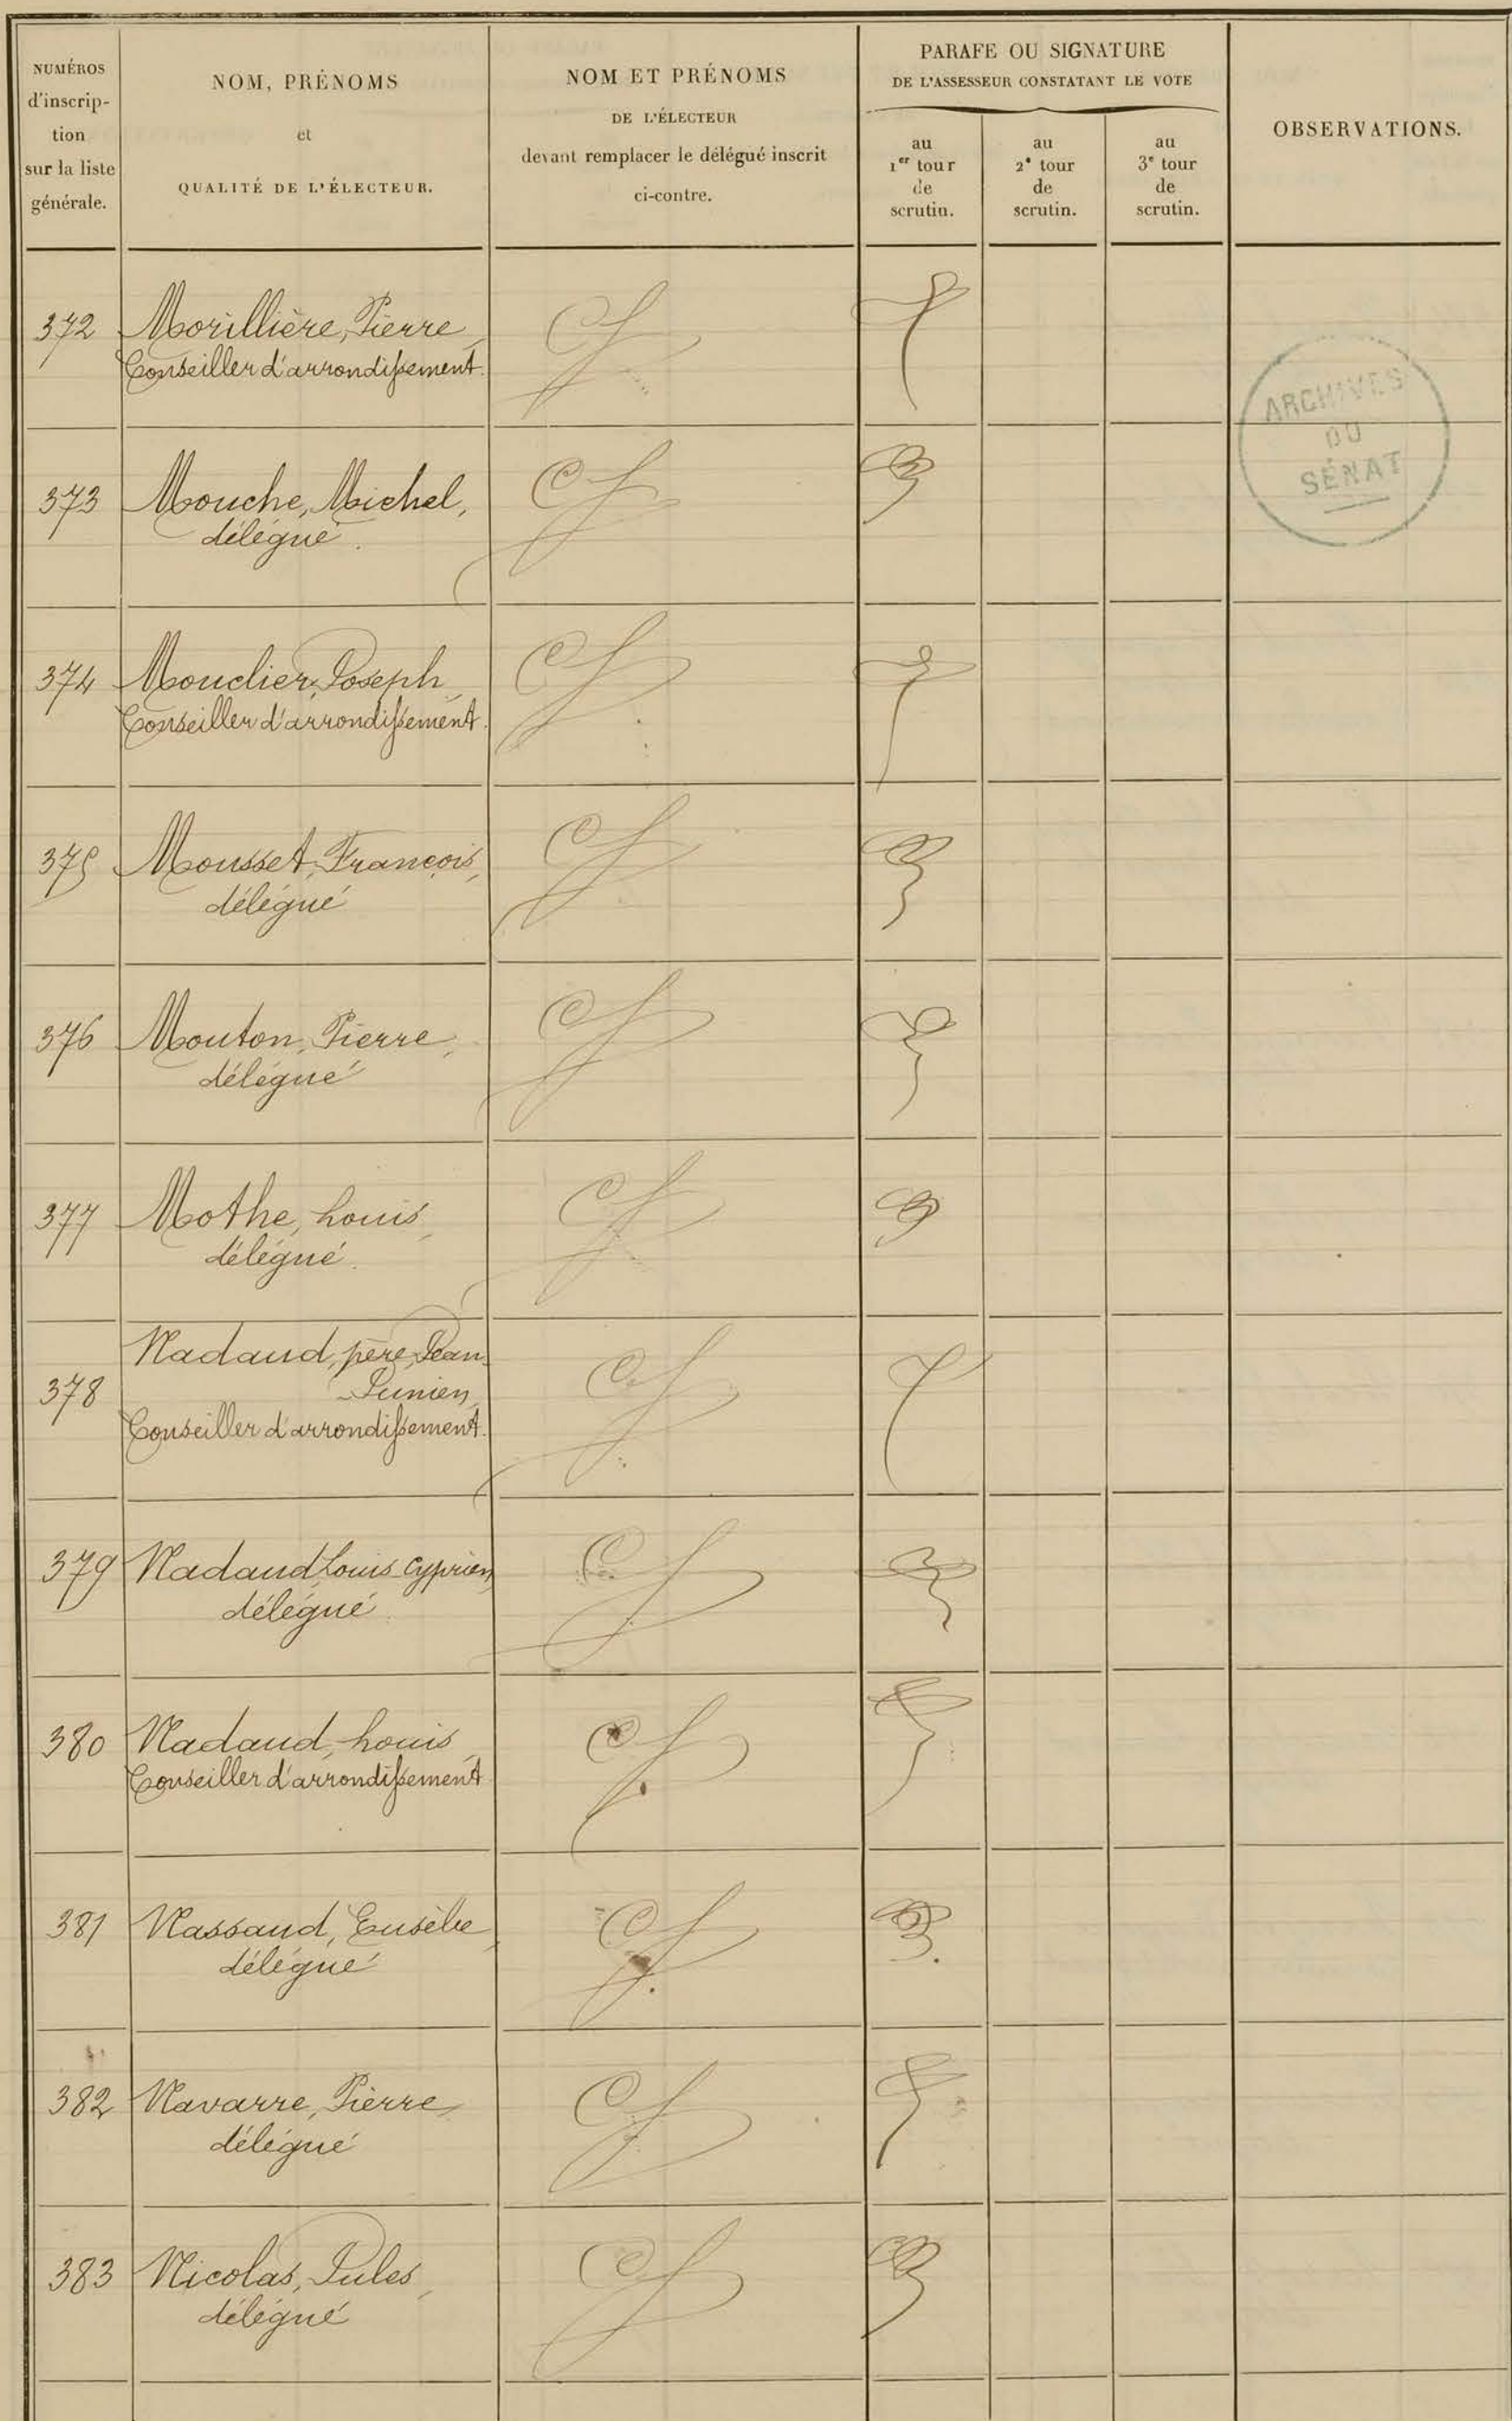 NUMÉROS
d'inscrip-
tion
sur la liste
générale.
NOM, PRÉNOMS
et
QUALITÉ DE L'ÉLECTEUR.
NOM ET PRÉNOMS
DE L'ÉLECTEUR
devant remplacer le délégué inscrit
ci-contre.
PARAFE OU SIGNATURE
DE L'ASSESSEUR CONSTATANT LE VOTE
au
1er tour
de
scrutin.
au
2e tour
de
scrutin.
au
3e tour
de
scrutin.
OBSERVATIONS.
372 Morillière, Pierre,
Conseiller d'arrondissement.
ARCHIVES
DU
SÉNAT
373 Mouche, Michel,
délégué.
374 Mouclier, Joseph,
Conseiller d'arrondissement.
375 Mousset, François,
délégué
376 Mouton, Pierre,
délégué
377 Mothe, Louis,
délégué.
Nadaud, père, Jean
378 Junien,
Conseiller d'arrondissement.
379 Nadaud Louis Cyprien,
délégué
380 Nadaud, Louis,
Conseiller d'arrondissement
381 Nassaud, Eusèbe,
délégué
382 Navarre, Pierre,
délégué
383 Nicolas, Jules,
délégué